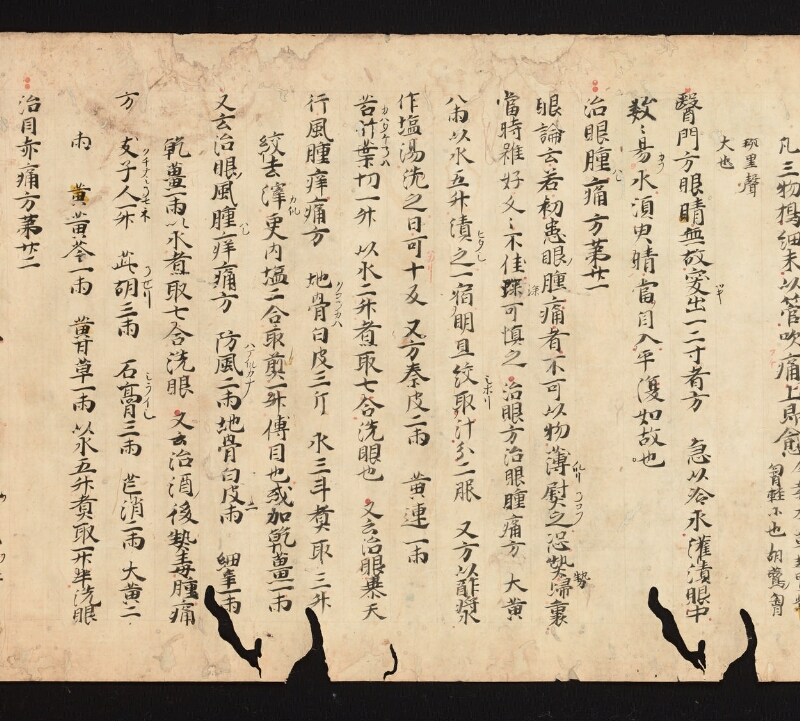 凡三物搗細末以管吹痛上即愈
斑里聲
大也
醫門方眼睛無故突出一二寸者方 急以冷水灌漬眼中
数〻易水須臾睛當自入平復如故也
治眼腫痛方第廿一
眼論云若初患眼腫痛者不可以物薄熨之恐熱歸裏
當時雖好久〻不佳深可慎之 治眼方治眼腫痛方 大黄
八兩以水五升漬之一宿明旦絞取汁分二服 又方以酢漿
作塩湯洗之日可十反 又方秦皮二兩 黄連一兩
苦竹葉切一升 以水二升煮取七合洗眼也 又云治眼暴天
行風腫痒痛方 地骨白皮三斤 水三斗煮取三升
絞去滓更内塩二合取煎一升傅目也或加乾薑一兩
又云治眼風腫痒痛方 防風二兩 地骨白皮一兩 細辛一兩
乾薑一兩以水煮取七合洗眼 又云治酒後熱毒腫痛
方 支子人一升 茈胡三兩 石膏三兩 芒消二兩 大黄二
兩 黄芩一兩 甘草一兩以水五升煮取一升半洗眼
治目赤痛方第廿二